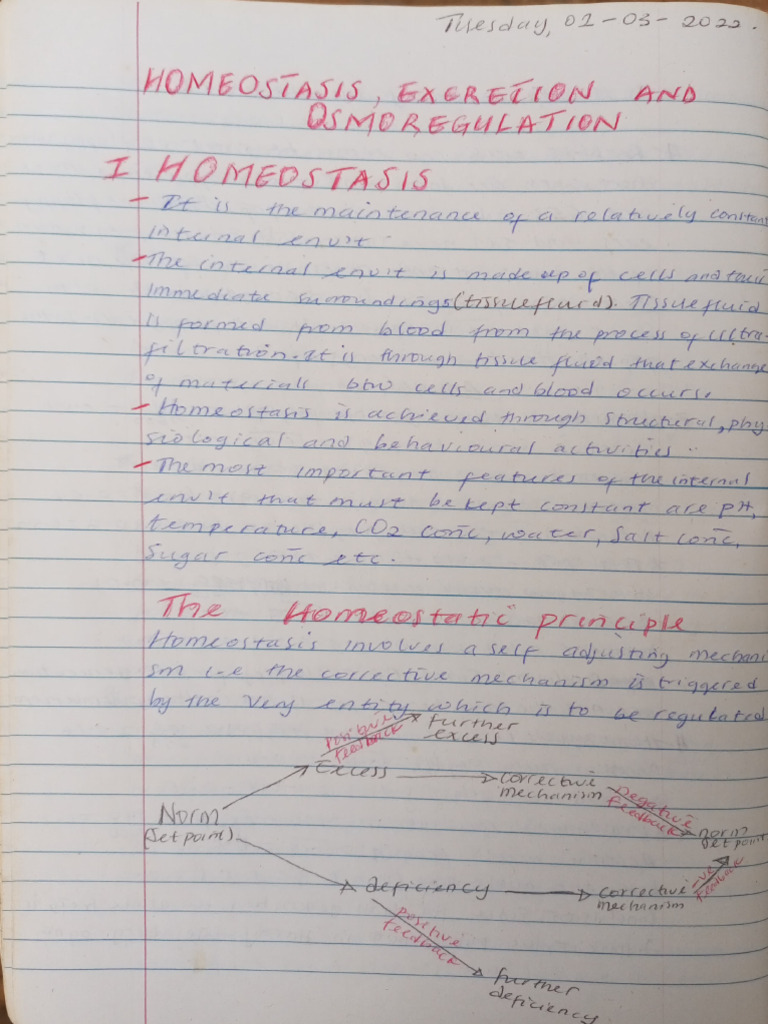 Tuesday, 01-03-2022.
HOMEOSTASIS, EXCRETION AND
OSMOREGULATION
I HOMEOSTASIS
- It is the maintenance of a relatively constant
internal envit.
- The internal envit is made up of cells and their
immediate surroundings (tissue fluid). Tissue fluid
is formed from blood from the process of ultra-
filtration. It is through tissue fluid that exchange
of materials btw cells and blood occurs.
- Homeostasis is achieved through structural, phy
siological and behavioural activities.
- The most important features of the internal
envit that must be kept constant are pH,
temperature, CO2 conc, water, salt conc,
sugar conc etc.
The Homeostatic principle
Homeostasis involves a self adjusting mechani
sm i.e the corrective mechanism is triggered
by the very entity which is to be regulated
positive feedback
further
excess
Excess
corrective
mechanism
negative
feedback
norm
set point
Norm
(set point)
-ve
feedback
deficiency
corrective
mechanism
positive
feedback
further
deficiency